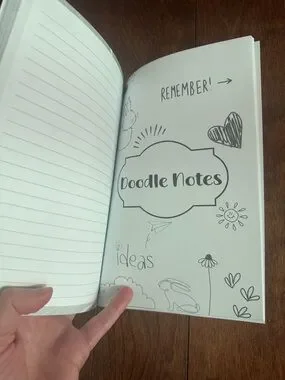 REMEMBER!
Doodle Notes
ideas